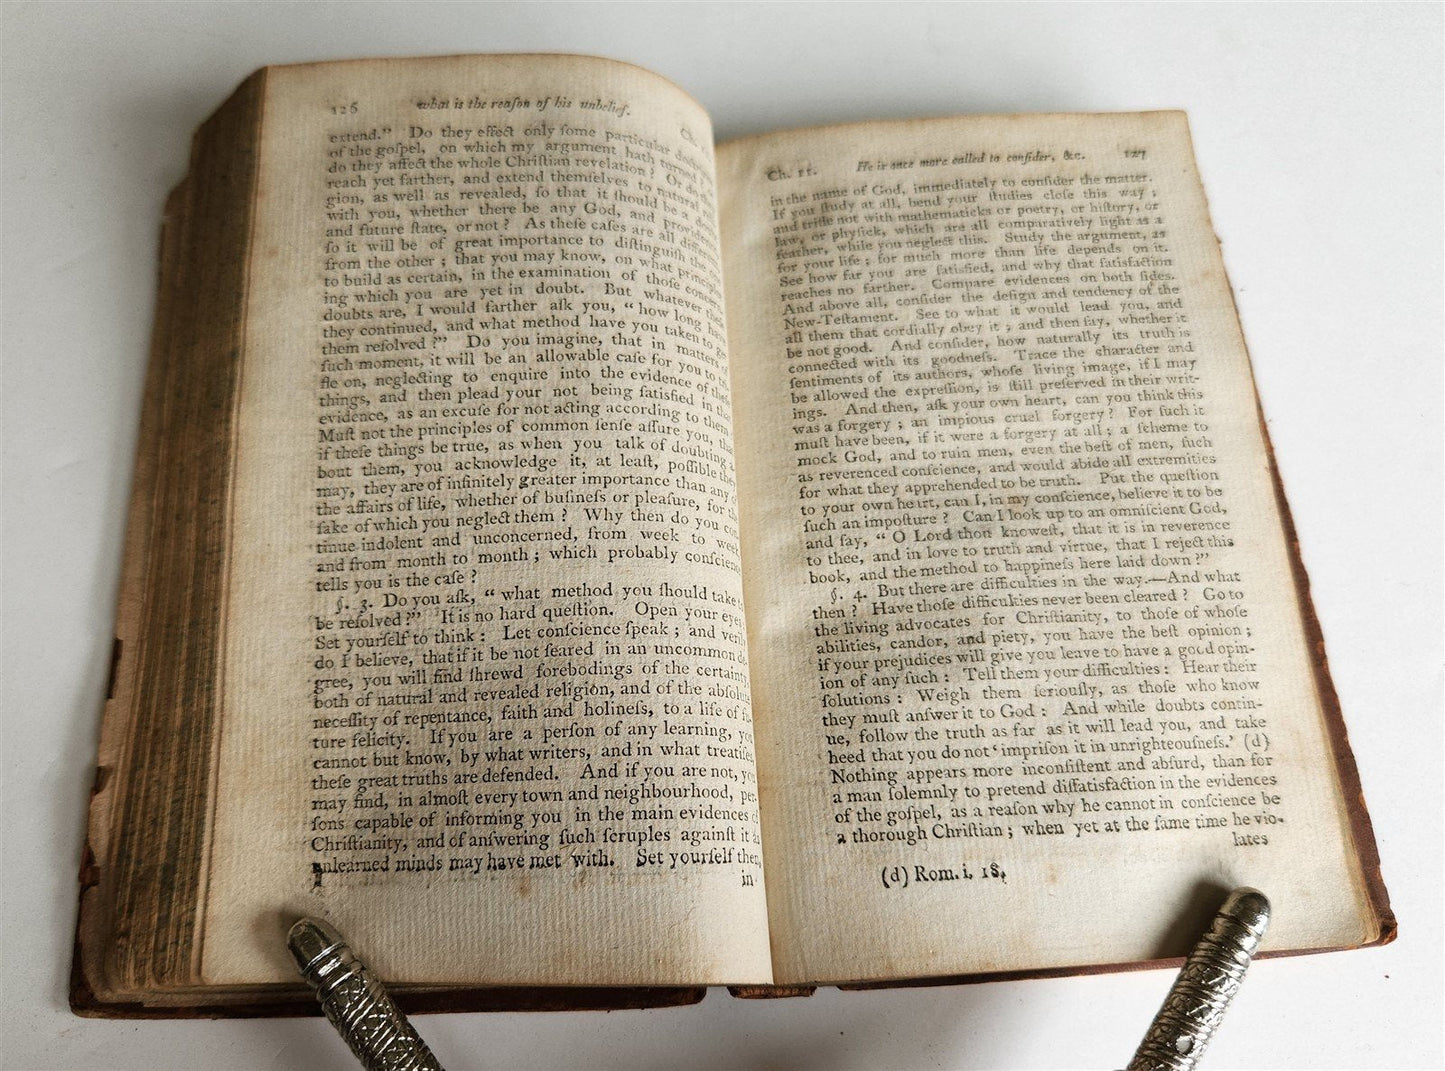 126 what is the reaſon of his unbelief.
extend." Do they effect only ſome particular
of the goſpel, on which my argument hath turned
do they affect the whole Chriſtian revelation? Or do
reach yet farther, and extend themſelves to natural
gion, as well as revealed, ſo that it ſhould be a
with you, whether there be any God, and providence
and future ſtate, or not? As theſe caſes are all different
ſo it will be of great importance to diſtinguiſh the
from the other; that you may know, on what
to build as certain, in the examination of thoſe
ing which you are yet in doubt. But whatever
doubts are, I would farther aſk you, "how long
they continued, and what method have you taken to
them reſolved?" Do you imagine, that in matters of
ſuch moment, it will be an allowable caſe for you to
fle on, neglecting to enquire into the evidence of theſe
things, and then plead your not being ſatisfied in
evidence, as an excuſe for not acting according to them
Muſt not the principles of common ſenſe aſſure you, that
if theſe things be true, as when you talk of doubting a
bout them, you acknowledge it, at leaſt, poſſible they
may, they are of infinitely greater importance than any of
the affairs of life, whether of buſineſs or pleaſure, for the
ſake of which you neglect them? Why then do you con
tinue indolent and unconcerned, from week to week
and from month to month; which probably conſcience
tells you is the caſe?
§. 3. Do you aſk, "what method you ſhould take
be reſolved?" It is no hard queſtion. Open your eyes
Set yourſelf to think: Let conſcience ſpeak; and verily
do I believe, that if it be not ſeared in an uncommon de-
gree, you will find ſhrewd forebodings of the certainty
both of natural and revealed religion, and of the abſolute
neceſſity of repentance, faith and holineſs, to a life of fu-
ture felicity. If you are a perſon of any learning, you
cannot but know, by what writers, and in what treatiſes
theſe great truths are defended. And if you are not, you
may find, in almoſt every town and neighbourhood, per-
ſons capable of informing you in the main evidences of
Chriſtianity, and of anſwering ſuch ſcruples againſt it as
unlearned minds may have met with. Set yourſelf then,
in
Ch. 11. He is once more called to conſider, &c. 127
in the name of God, immediately to conſider the matter.
If you ſtudy at all, bend your ſtudies cloſe this way;
and trifle not with mathematicks or poetry, or hiſtory, or
law, or phyſick, which are all comparatively light as a
feather, while you neglect this. Study the argument, as
for your life; for much more than life depends on it.
See how far you are ſatisfied, and why that ſatisfaction
reaches no farther. Compare evidences on both ſides.
And above all, conſider the deſign and tendency of the
New-Teſtament. See to what it would lead you, and
all them that cordially obey it; and then ſay, whether it
be not good. And conſider, how naturally its truth is
connected with its goodneſs. Trace the character and
ſentiments of its authors, whoſe living image, if I may
be allowed the expreſſion, is ſtill preſerved in their writ-
ings. And then, aſk your own heart, can you think this
was a forgery; an impious cruel forgery? For ſuch it
muſt have been, if it were a forgery at all; a ſcheme to
mock God, and to ruin men, even the beſt of men, ſuch
as reverenced conſcience, and would abide all extremities
for what they apprehended to be truth. Put the queſtion
to your own heart, can I, in my conſcience, believe it to be
ſuch an impoſture? Can I look up to an omniſcient God,
and ſay, "O Lord thou knoweſt, that it is in reverence
to thee, and in love to truth and virtue, that I reject this
book, and the method to happineſs here laid down?"
§. 4. But there are difficulties in the way.—And what
then? Have thoſe difficulties never been cleared? Go to
the living advocates for Chriſtianity, to thoſe of whoſe
abilities, candor, and piety, you have the beſt opinion;
if your prejudices will give you leave to have a good opin-
ion of any ſuch: Tell them your difficulties: Hear their
ſolutions: Weigh them ſeriouſly, as thoſe who know
they muſt anſwer it to God: And while doubts contin-
ue, follow the truth as far as it will lead you, and take
heed that you do not 'impriſon it in unrighteouſneſs.' (d)
Nothing appears more inconſiſtent and abſurd, than for
a man ſolemnly to pretend diſſatisfaction in the evidences
of the goſpel, as a reaſon why he cannot in conſcience be
a thorough Chriſtian; when yet at the ſame time he vio-
lates
(d) Rom. i. 18.